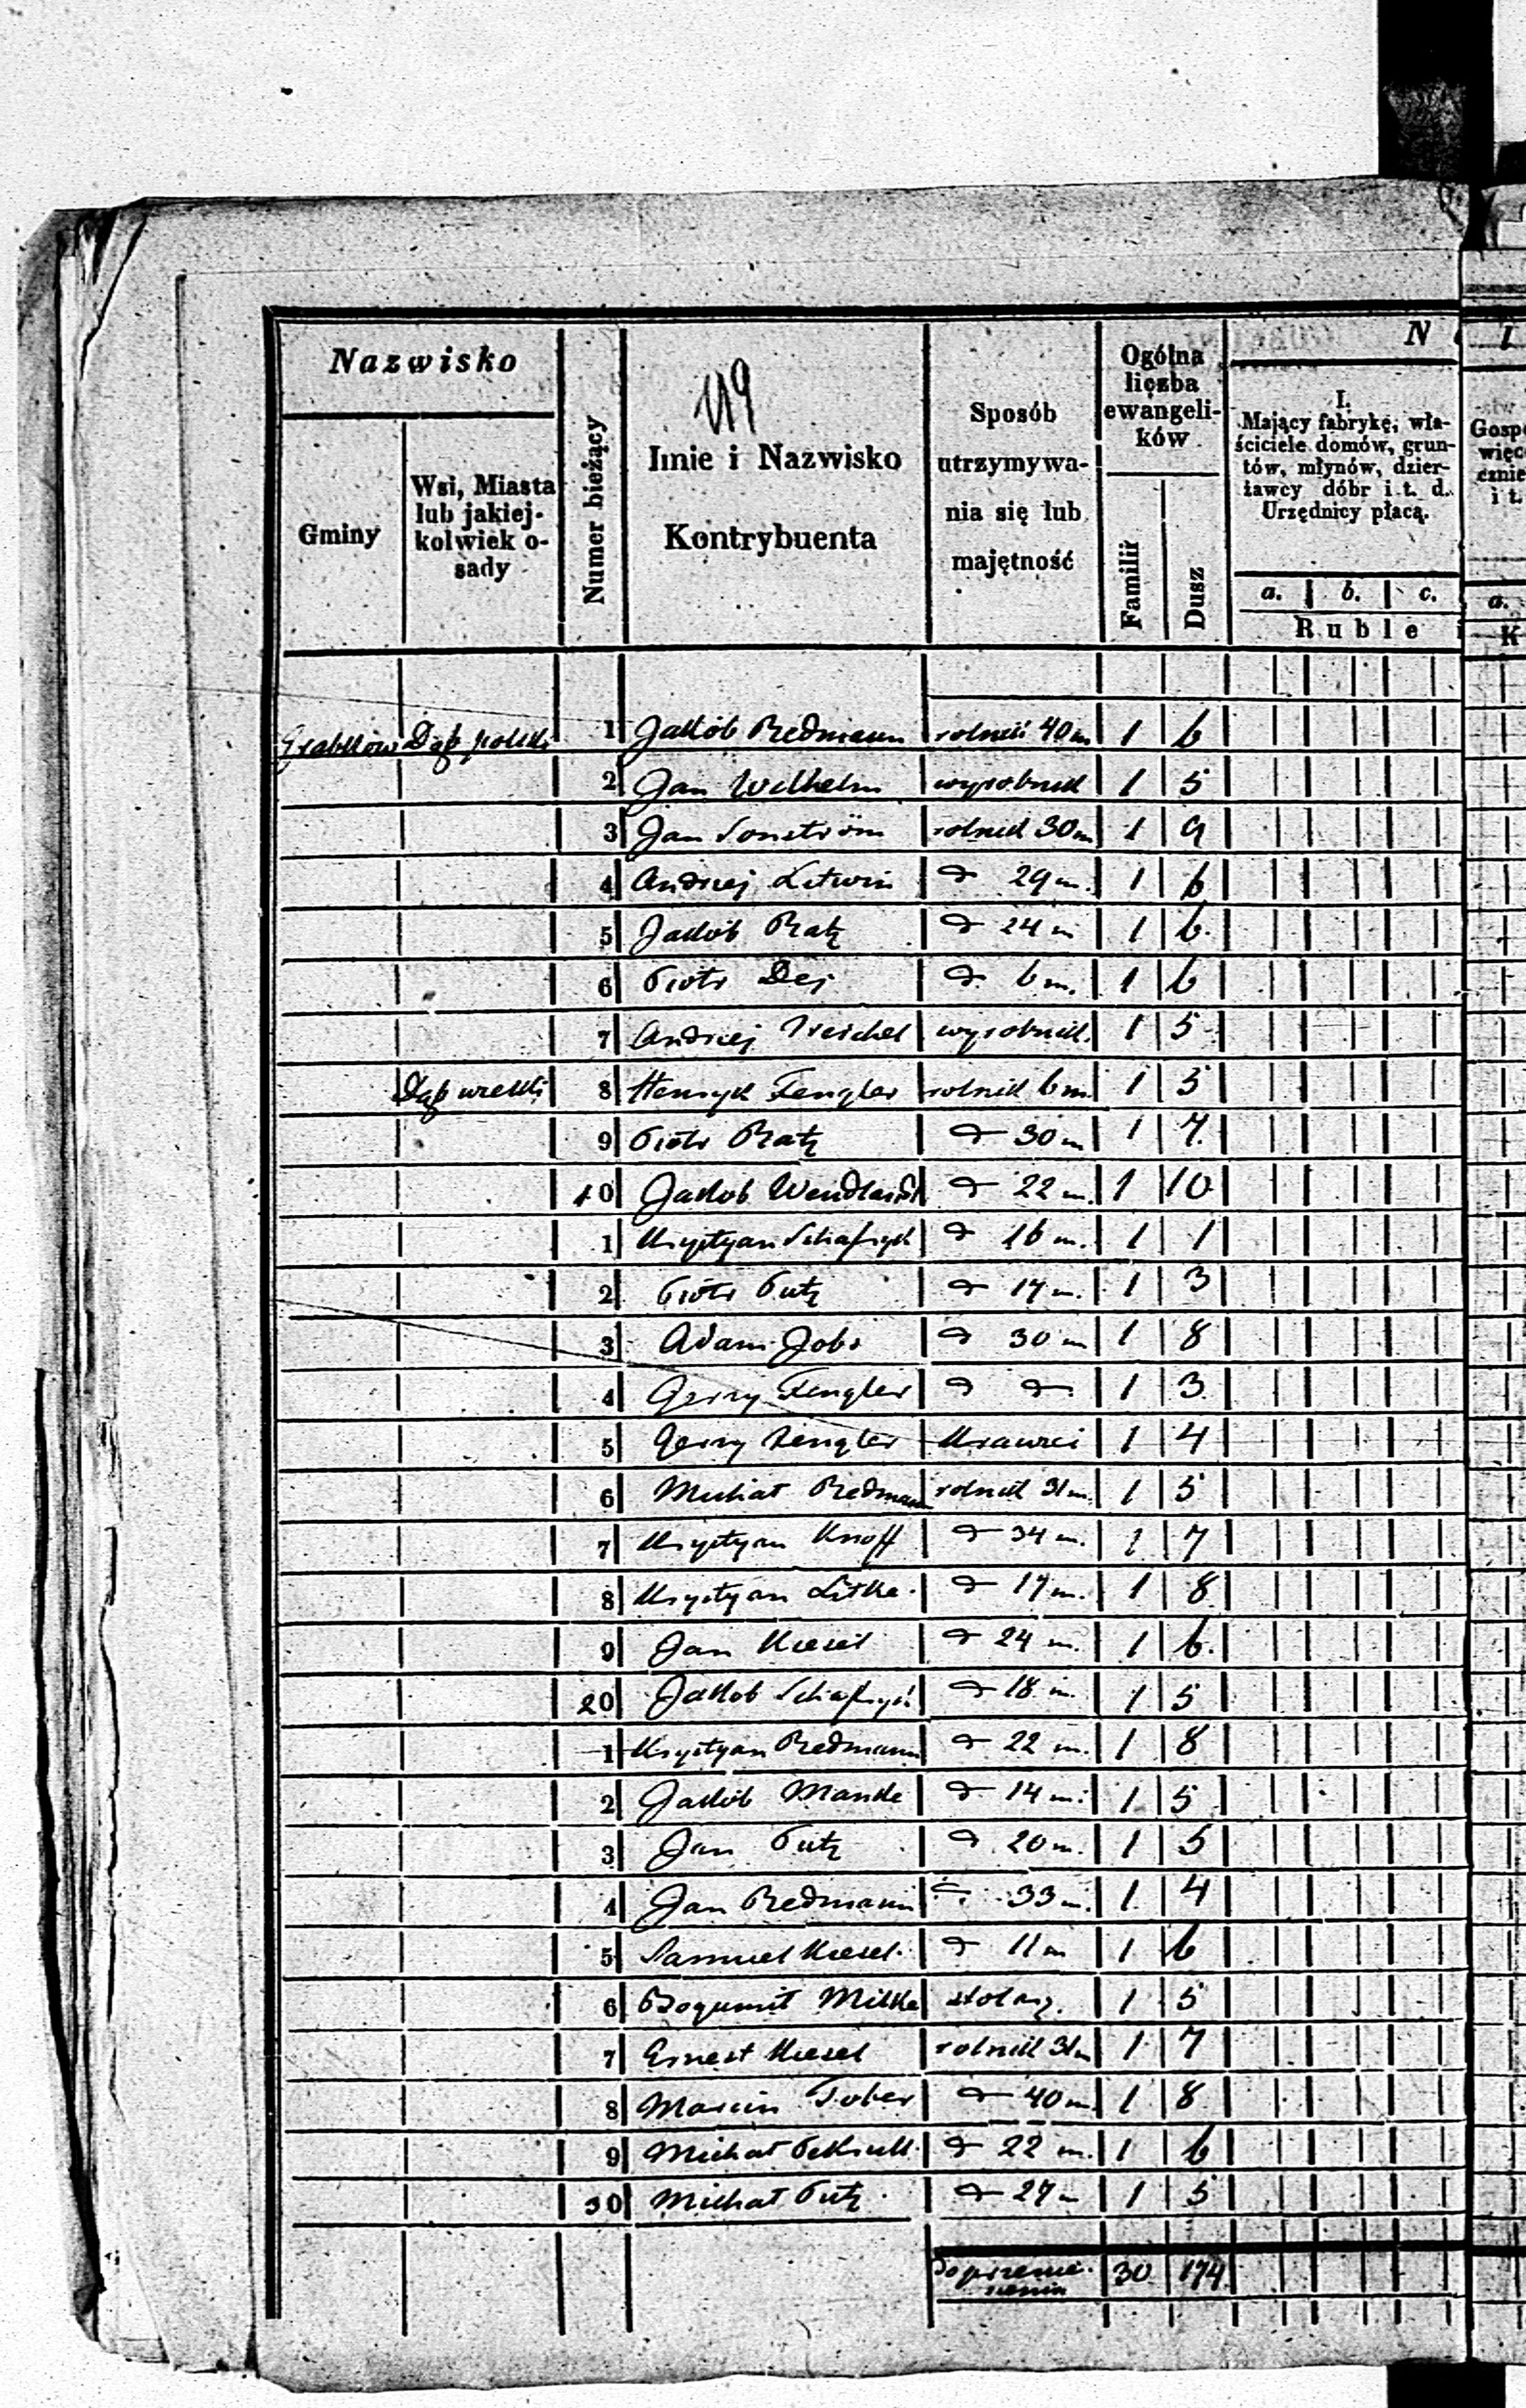 Nazwisko
Gminy
Wsi, Miasta
lub jakiej-
kolwiek o-
sady
Numer bieżący
119
Imie i Nazwisko
Kontrybuenta
Sposób
utrzymywa-
nia się lub
majętność
Ogólna
liczba
ewangeli-
ków
Familii
Dusz
N
I.
Mający fabrykę, wła-
ściciele domów, grun-
tów, młynów, dzier-
żawcy dóbr i t. d.
Urzędnicy płacą.
a. b. c.
Ruble
Dąb polski 1 Jakób Redmann rolnik 40 m 1 6
2 Jan Wilhelm wyrobnik 1 5
3 Jan Sonström rolnik 30 m 1 9
4 Andrzej Litwin d 29 m. 1 6
5 Jakób Ratz d 24 m 1 6.
6 Piotr Dej d 6 m. 1 6
7 Andrzej Treichel wyrobnik. 1 5
Dąb wielki 8 Henryk Fengler rolnik 6 m. 1 5
9 Piotr Ratz d 30 m 1 7.
10 Jakób Wendlandt d 22 m. 1 10
1 Krystyan d 16 m. 1 1
2 Piotr Putz d 17 m. 1 3
3 Adam Jobs d 30 m 1 8
4 Jerzy Fengler d d 1 3
5 Jerzy Zengler Krawiec 1 4
6 Michał Redmann rolnik 31 m. 1 5
7 Krystyan Knoff d 34 m. 1 7
8 Krystyan Litke d 17 m. 1 8
9 Jan Kiesel d 24 m. 1 6.
20 Jakób d 18 m. 1 5
1 Krystyan Redmann d 22 m. 1 8
2 Jakób Manke d 14 m. 1 5
3 Jan Putz d 20 m. 1 5
4 Jan Redmann d 33 m. 1 4
5 Samuel Kiesel d 11 m 1 6
6 Bogumił Milke stolarz. 1 5
7 Ernest Kiesel rolnik 31 m 1 7
8 Marcin Tober d 40 m. 1 8
9 Michał d 22 m. 1 6
30 Michał Putz d 27 m 1 5
Do przenie-
sienia 30 174